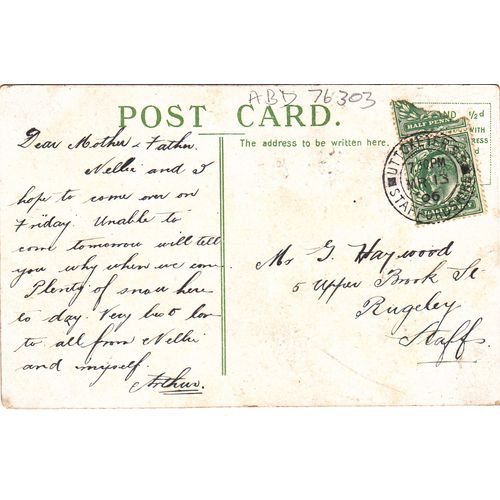 ABD 76303
POST CARD.
The address to be written here.
HALF PENN
½d
WITH
UTTOXETER
PM
13
06
STAFF
Dear Mother & Father.
Nellie and I
hope to come over on
Friday. Unable to
come tomorrow will tell
you why when we come
Plenty of snow here
to day. Very best love
to all from Nellie
and myself.
Arthur.
Mr G. Haywood
5 Upper Brook St
Rugeley
Staffs.